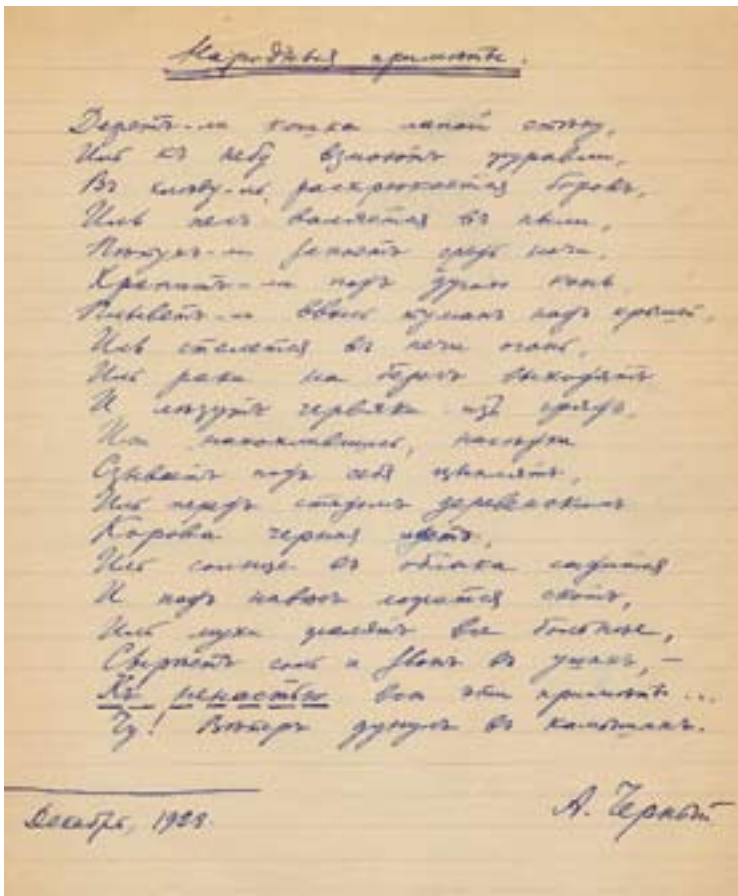 Народныя примѣты.
Деретъ-ли кошка лапой стѣну,
Иль къ небу взмоютъ журавли,
Въ хлѣву-ль раскрюкается боровъ,
Иль песъ валяется въ пыли,
Пѣтухъ-ли запоетъ средь ночи,
Храпитъ-ли подъ дугою конь,
Плыветъ-ли ввысь туманъ надъ крышей,
Иль стелется въ печи огонь,
Иль раки на берегъ выходятъ
И лѣзутъ червяки изъ грядъ,
Иль нахохлившись, насѣдки
Сзываютъ подъ себя цыплятъ,
Иль передъ стадомъ деревенскимъ
Корова черная идетъ,
Иль солнце въ облака садится
И подъ навѣсъ ложится скотъ,
Иль мухи жалятъ все больнѣе,
Сырѣетъ соль и звонъ въ ушахъ, —
Къ ненастью всѣ эти примѣты...
Чу! Вѣтеръ дунулъ въ камышахъ.
Декабрь, 1928.
А. Черный